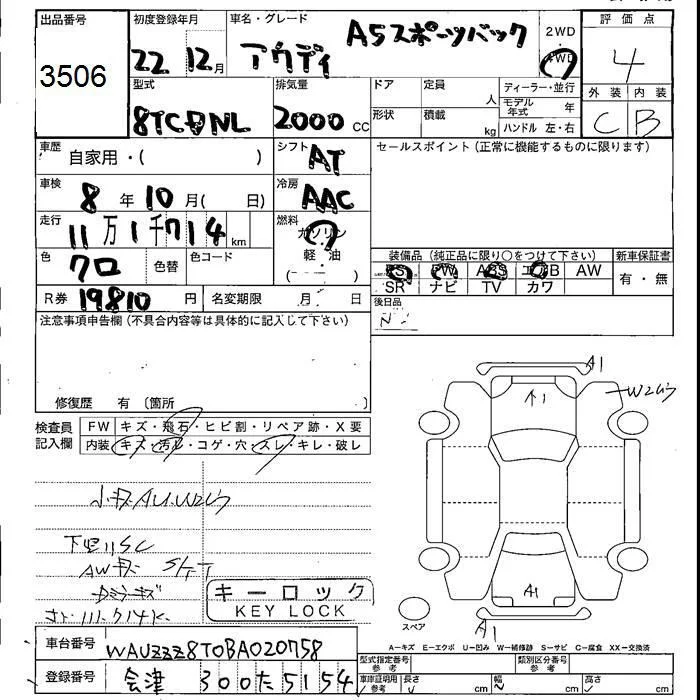 出品番号
3506
初度登録年月
22年 12月
車名・グレード
アウディ A5スポーツバック
2WD
4WD
評価点
4
外装 内装
C B
型式
8TCDNL
排気量
2000 CC
ドア 定員 人
形状 積載 kg
ディーラー・並行
モデル年式 年
ハンドル 左・右
車歴
自家用・( )
シフト
AT
セールスポイント(正常に機能するものに限ります)
車検
8年 10月( 日)
冷房
AAC
走行
11万1千714 km
燃料
ガソリン
軽・油
( )
色
クロ
色替
色コード
装備品(純正品に限り○をつけて下さい)
新車保証書
PS PW ABS エアB AW
SR ナビ TV カワ
有・無
R券 19810 円
名変期限 月 日
後日品
注意事項申告欄(不具合内容等は具体的に記入して下さい)
修復歴 有〔箇所 〕
検査員記入欄
FW キズ・飛石・ヒビ割・リペア跡・X要
内装 キズ・汚れ・コゲ・穴・スレ・キレ・破レ
A1
A1
W2
下廻りSC
キーロック
KEY LOCK
スペア
A1
A1
A…キズ E…エクボ U…凹み W…補修跡 S…サビ C…腐食 XX…交換済
車台番号
WAUZZZ8T0BA020758
登録番号
会津 300 た 5154
型式指定番号
参考
類別区分番号
参考
車庫証明用
参考
長さ cm 幅 cm 高さ cm